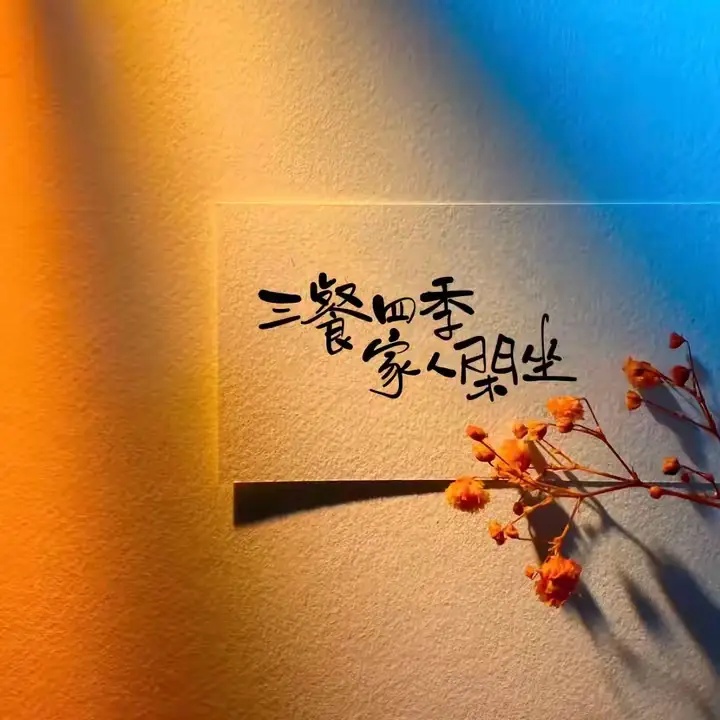 三餐四季
家人閑坐